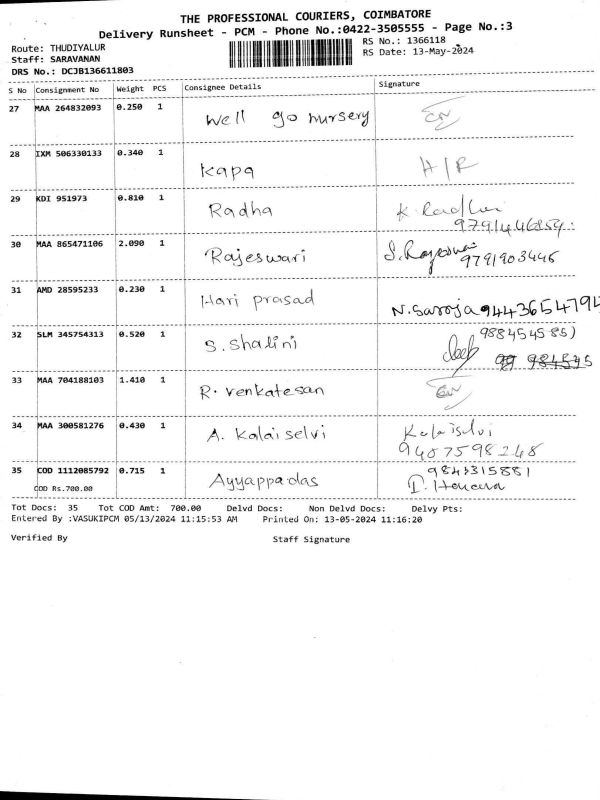 THE PROFESSIONAL COURIERS, COIMBATORE
Delivery Runsheet - PCM - Phone No.:0422-3505555 - Page No.:3
Route: THUDIYALUR
RS No.: 1366118
Staff: SARAVANAN
RS Date: 13-May-2024
DRS No.: DCJB136611803
S No Consignment No Weight PCS Consignee Details Signature
27 MAA 264832093 0.250 1 Well go nursery
28 IXM 506330133 0.340 1 Kapa H/R
29 KDI 951973 0.810 1 Radha K. Radha
30 MAA 865471106 2.090 1 Rajeswari 9791903446
31 AMD 28595233 0.230 1 Hari prasad N. Saroja 9443654794
32 SLM 345754313 0.520 1 S. Shalini
33 MAA 704188103 1.410 1 R. venkatesan
34 MAA 300581276 0.430 1 A. Kalaiselvi Kalaiselvi
9487598248
35 COD 1112085792 0.715 1 Ayyappadas 9843315881
COD Rs.700.00
Tot Docs: 35 Tot COD Amt: 700.00 Delvd Docs: Non Delvd Docs: Delvy Pts:
Entered By :VASUKIPCM 05/13/2024 11:15:53 AM Printed On: 13-05-2024 11:16:20
Verified By Staff Signature